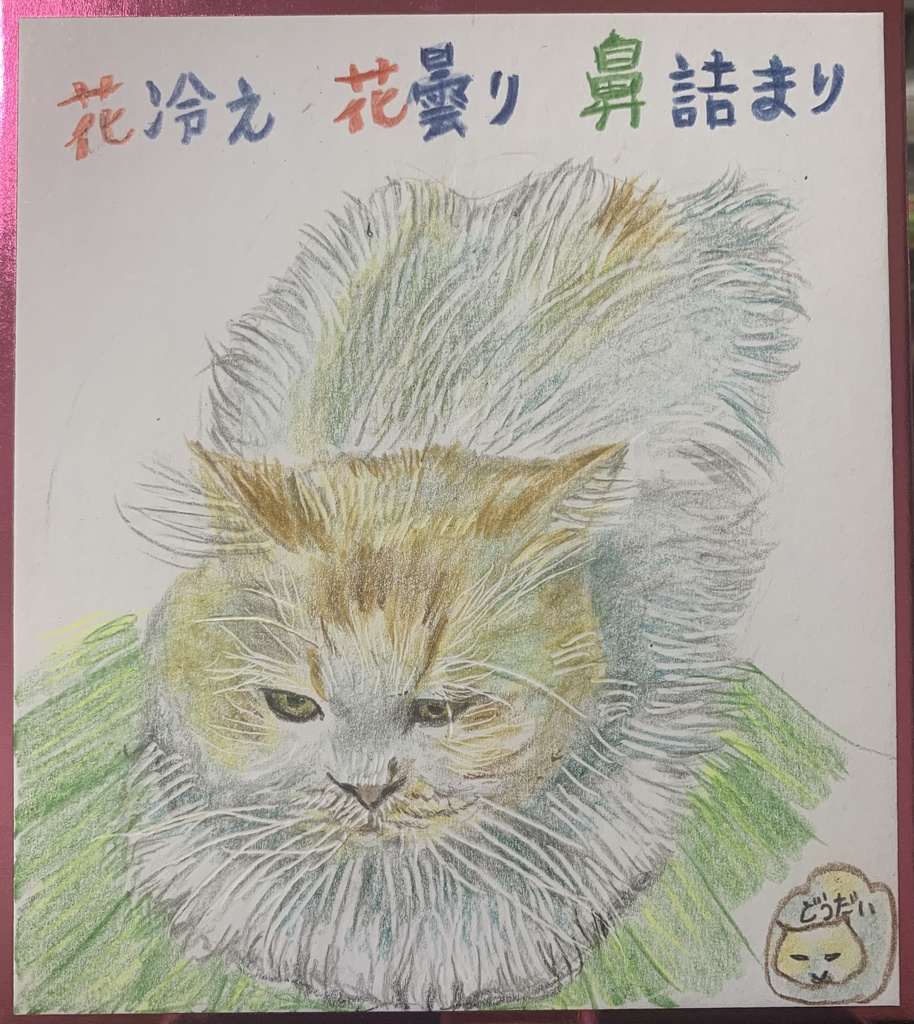 花冷え 花曇り 鼻詰まり
どうだい